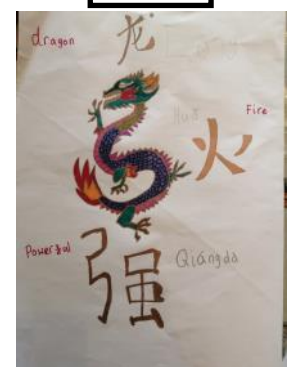 dragon
龙
Huǒ
Fire
火
Powerful
强
Qiángdà